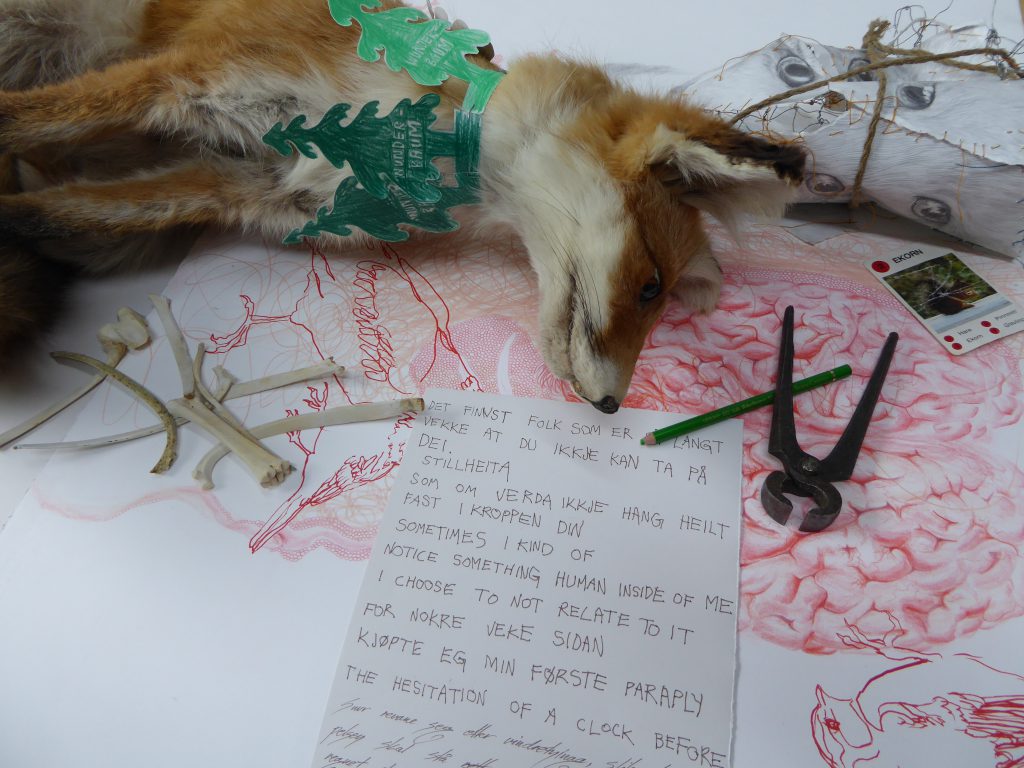 WUNDER-
BAUM
WUNDER-
BAUM
WUNDER
BAUM
EKORN
Hare
Ekorn
Pinnsvin
DET FINNST FOLK SOM ER LANGT
VEKKE AT DU IKKJE KAN TA PÅ
DEI.
STILLHEITA
SOM OM VERDA IKKJE HANG HEILT
FAST I KROPPEN DIN
SOMETIMES I KIND OF
NOTICE SOMETHING HUMAN INSIDE OF ME
I CHOOSE TO NOT RELATE TO IT
FOR NOKRE VEKE SIDAN
KJØPTE EG MIN FØRSTE PARAPLY
THE HESITATION OF A CLOCK BEFORE
Snur revane seg etter
pelsen skal